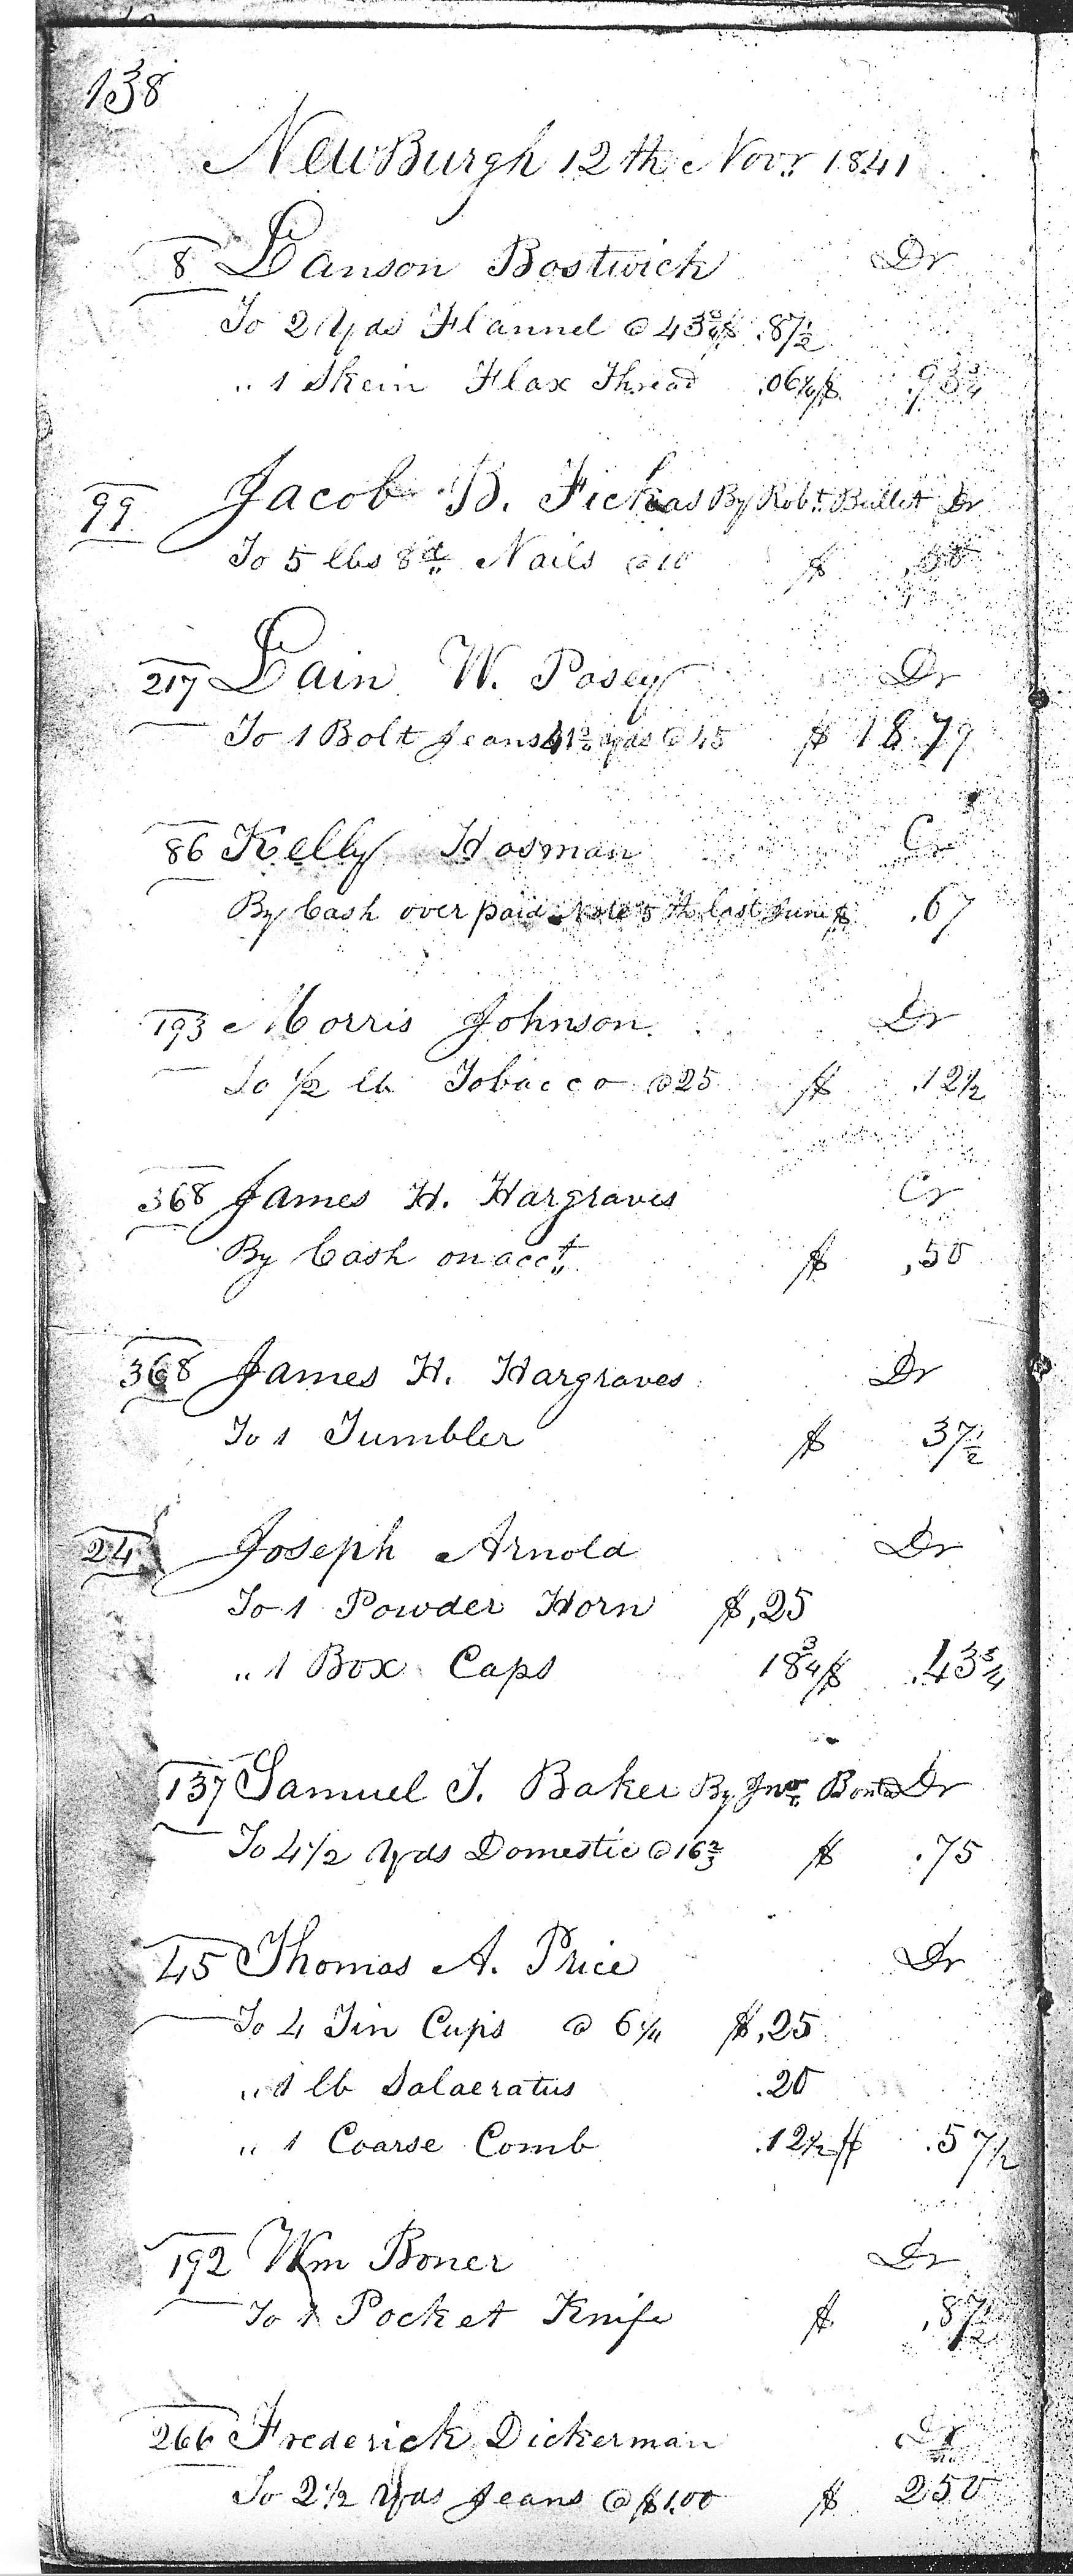 138
NewBurgh 12th Novr. 1841
8 Lanson Bostwick Dr
To 2 Yds Flannel @ 43¾ $ .87½
" 1 Skein Flax Thread .06¼ $ .93¾
99 Jacob B. Fickas By Robt. Bullet Dr
To 5 lbs 8d Nails @ 10 $ .50
217 Lain W. Posey Dr
To 1 Bolt Jeans 41 yds @ 45 $ 18.79
86 Kelly Hosman Cr
By Cash over paid Note 5th last June $ .67
193 Morris Johnson Dr
To ½ lb Tobacco @ 25 $ .12½
368 James H. Hargraves Cr
By Cash on acct. $ ,50
368 James H. Hargraves Dr
To 1 Tumbler $ 37½
24 Joseph Arnold Dr
To 1 Powder Horn $,25
" 1 Box Caps 18¾ $ .43¾
137 Samuel T. Baker By Jno. Dr
To 4½ Yds Domestic @ 16⅔ $ .75
45 Thomas A. Price Dr
To 4 Tin Cups @ 6¼ $,25
" 1 lb Salaeratus .20
" 1 Coarse Comb .12½ $ .57½
192 Wm Boner Dr
To 1 Pocket Knife $ ,87½
266 Frederick Dickerman Dr
To 2½ Yds Jeans @ $1.00 $ 250